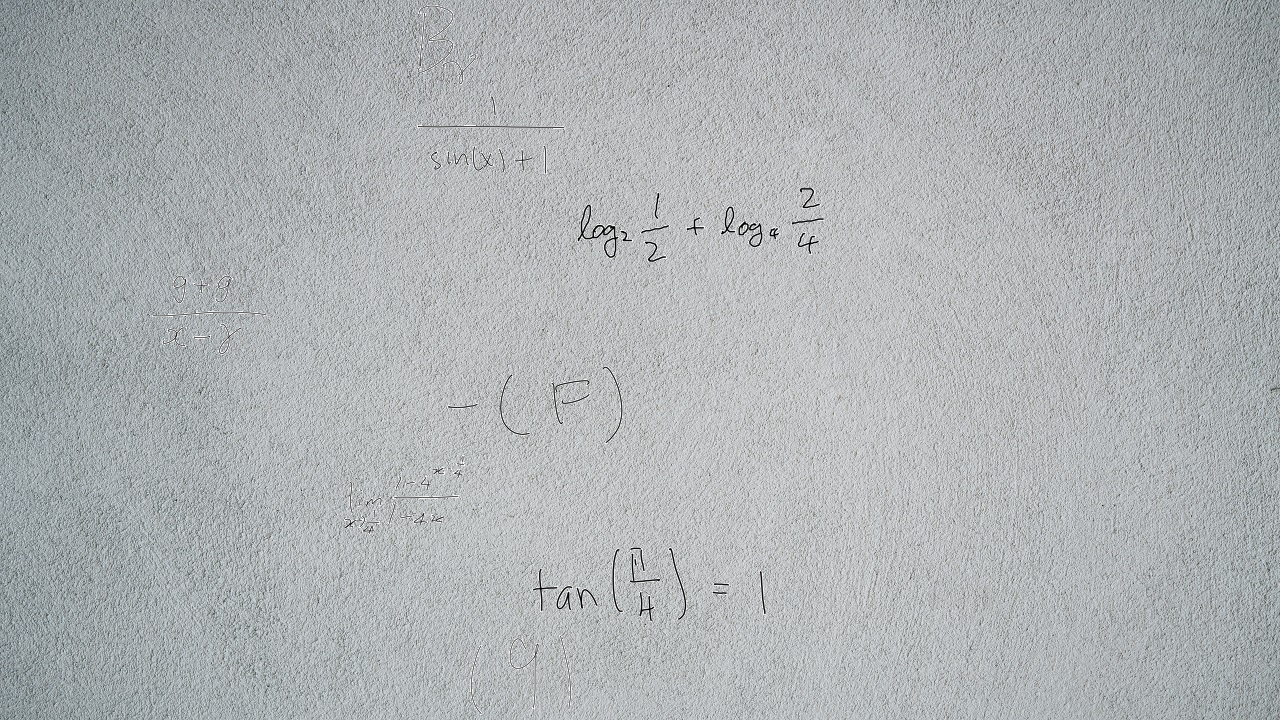 B_n
\frac{1}{sin(x)+1}
log_2 \frac{1}{2} + log_4 \frac{2}{4}
\frac{g+g}{x-γ}
-(F)
\lim_{x→\frac{1}{4}} \frac{1-4^{x-\frac{1}{4}}}{1-4x}
tan(\frac{π}{4}) = 1
(9)